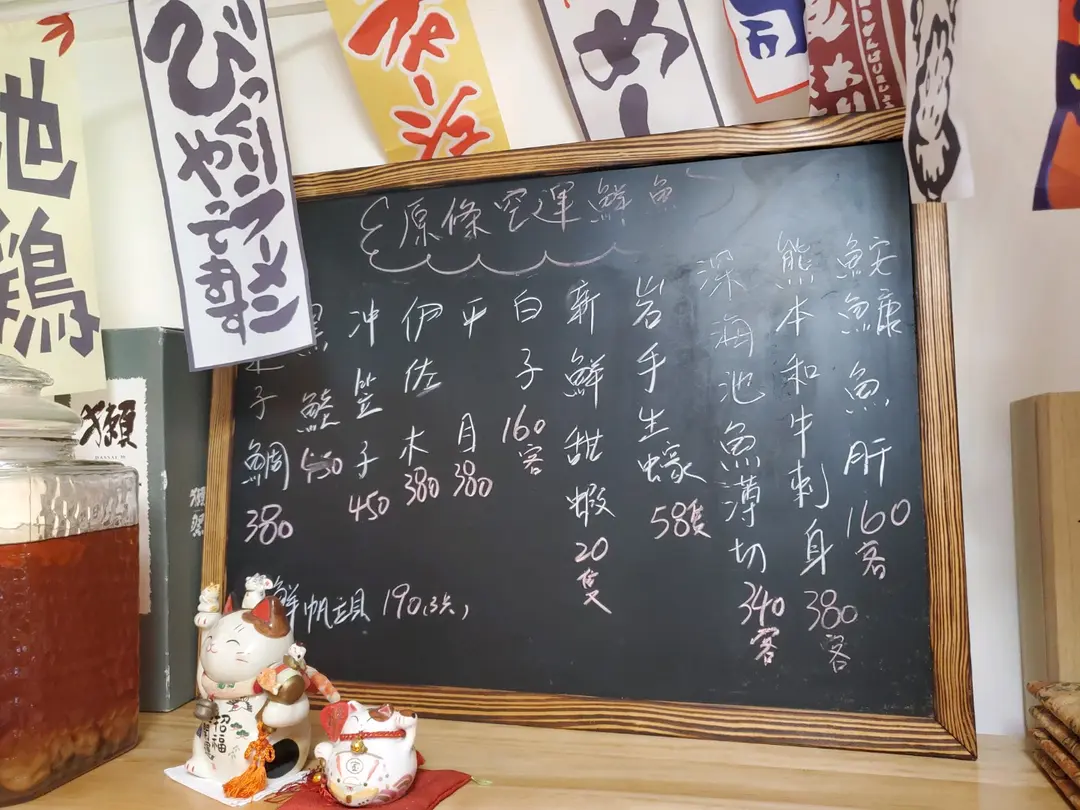 原條空運鮮魚
鮟鱇魚肝 160客
熊本和牛刺身 380客
深海池魚薄切 340客
岩手生蠔 58隻
新鮮甜蝦 20隻
白子 160客
平目 380
伊佐木 380
冲笠子 450
黑鯥
子鯛 380
鮮帆立貝 190
池鶏
びっくりラーメン
やってます
獺
招福